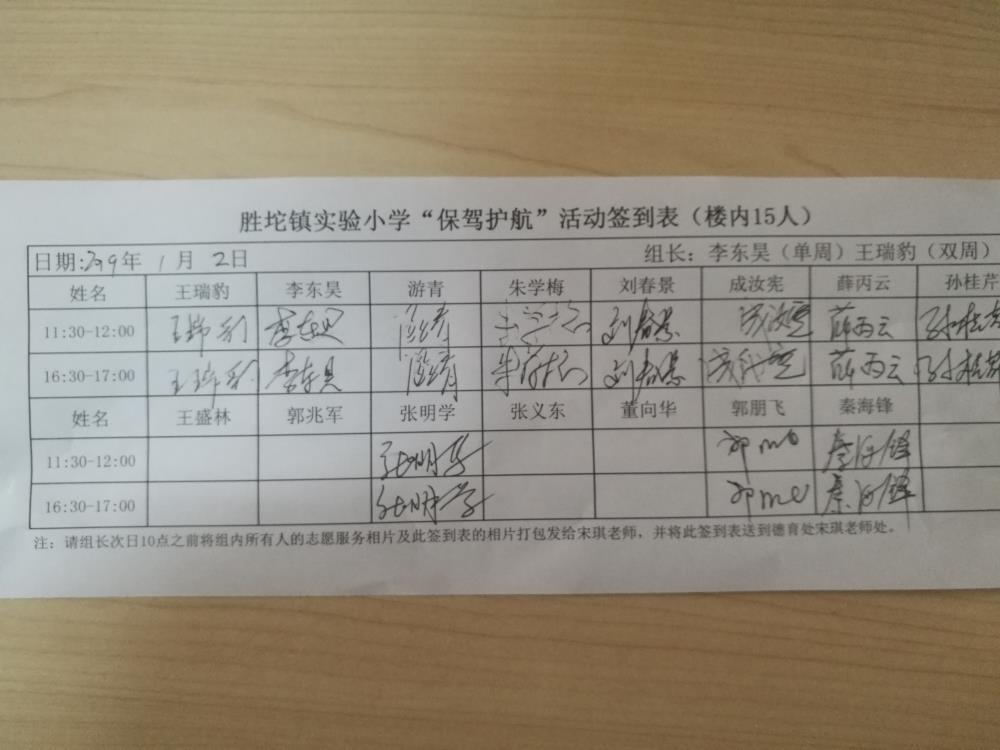 胜坨镇实验小学“保驾护航”活动签到表（楼内15人）
日期:2019年 1月 2日 组长：李东昊（单周）王瑞豹（双周）
姓名 王瑞豹 李东昊 游青 朱学梅 刘春景 成汝宪 薛丙云 孙桂芹
11:30-12:00 王瑞豹 李东昊 游青 朱学梅 刘春景 成汝宪 薛丙云 孙桂芹
16:30-17:00 王瑞豹 李东昊 游青 朱学梅 刘春景 成汝宪 薛丙云 孙桂芹
姓名 王盛林 郭兆军 张明学 张义东 董向华 郭朋飞 秦海锋
11:30-12:00 张明学 秦海锋
16:30-17:00 张明学 秦海锋
注：请组长次日10点之前将组内所有人的志愿服务相片及此签到表的相片打包发给宋琪老师，并将此签到表送到德育处宋琪老师处。